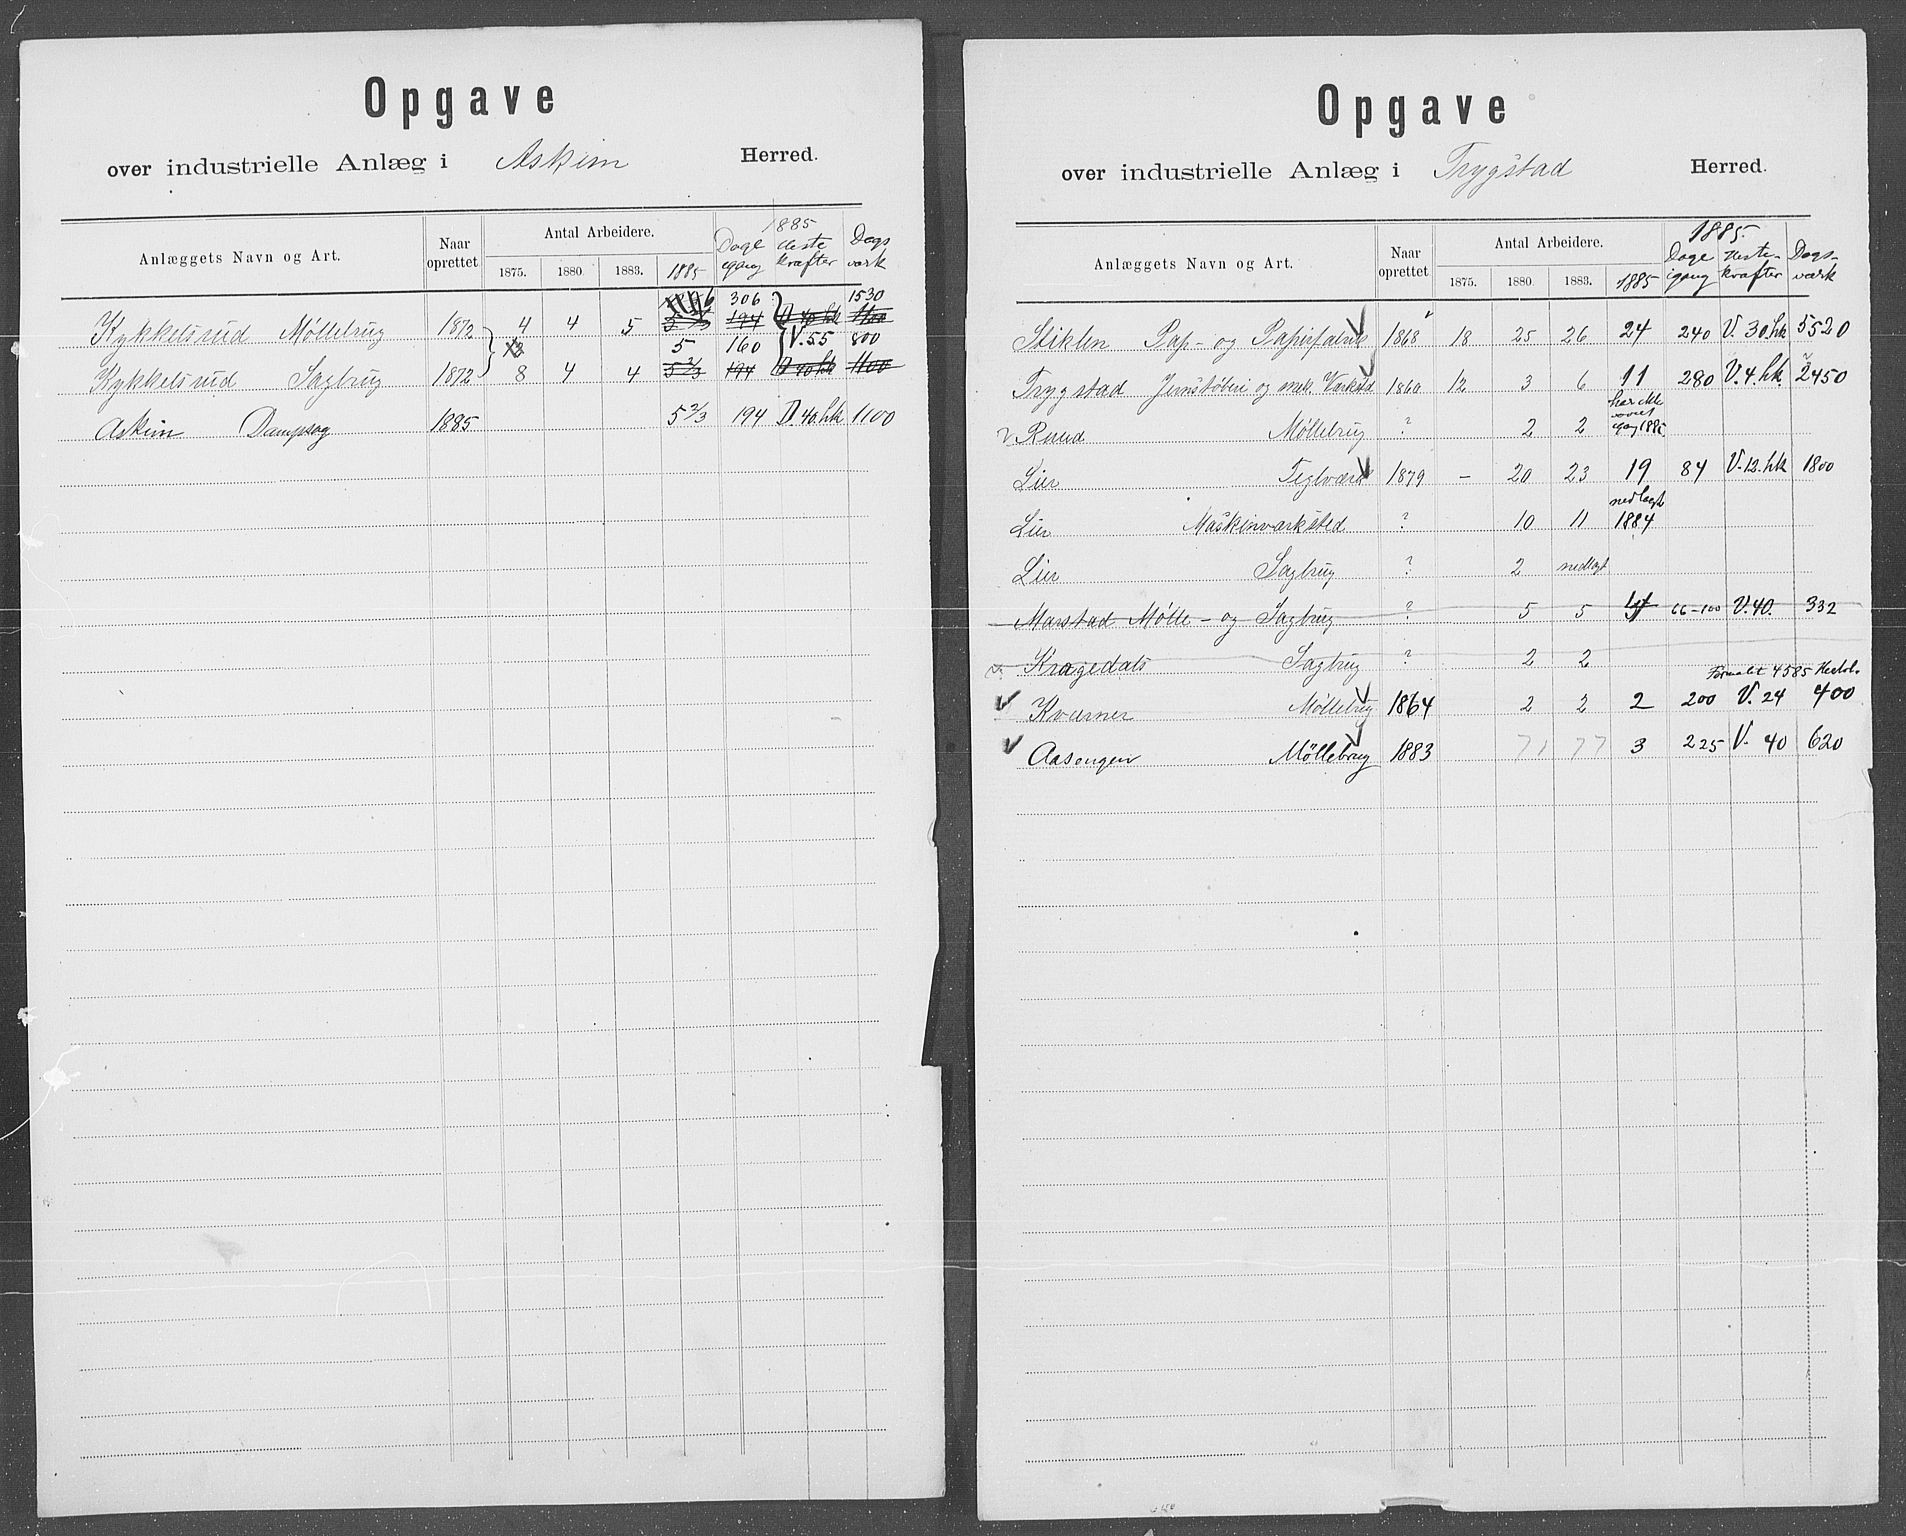 Opgave
over industrielle Anlæg i Askim Herred.
Anlæggets Navn og Art. Naar oprettet Antal Arbeidere. 1875. 1880. 1883. 1885 1885 Dage igang Heste kræfter Dags værk
Kykkelsrud Møllebrug 1872 4 4 5 6 306 1530
5 2/3 194 D 40 hk 1100
12 5 160 V. 55 800
Kykkelsrud Sagbrug 1872 8 4 4 5 2/3 194 D 40 hk 1100
Askim Dampsag 1885 5 2/3 194 D. 40. hk 1100
Opgave
over industrielle Anlæg i Trygstad Herred.
Anlæggets Navn og Art. Naar oprettet Antal Arbeidere. 1875. 1880. 1883. 1885 1885. Dage igang Heste- kræfter Dags- værk
Stiklen Pap- og Papirfabrik 1868 18 25 26 24 240 V. 30. hk 5520
Trygstad Jernstøberi og mek. Værksted 1860 12 3 6 11 280 V. 4. hk. 2450
Ruud Møllebrug ? 2 2 har ikke været igang 1885
Lier Teglværk 1879 – 20 23 19 84 V. 12. hk 1800
Lier Maskinværksted ? 10 11 nedlagt 1884
Lier Sagbrug ? 2 nedlagt
Marstad Mølle- og Sagbrug ? 5 5 66-100 V. 40. 332
Kragedals Sagbrug ? 2 2
Formalet 4585 Hectol.
Kværner Møllebrug 1864 2 2 2 200 V. 24 400
Aasengen Møllebrug 1883 3 225 V. 40 620